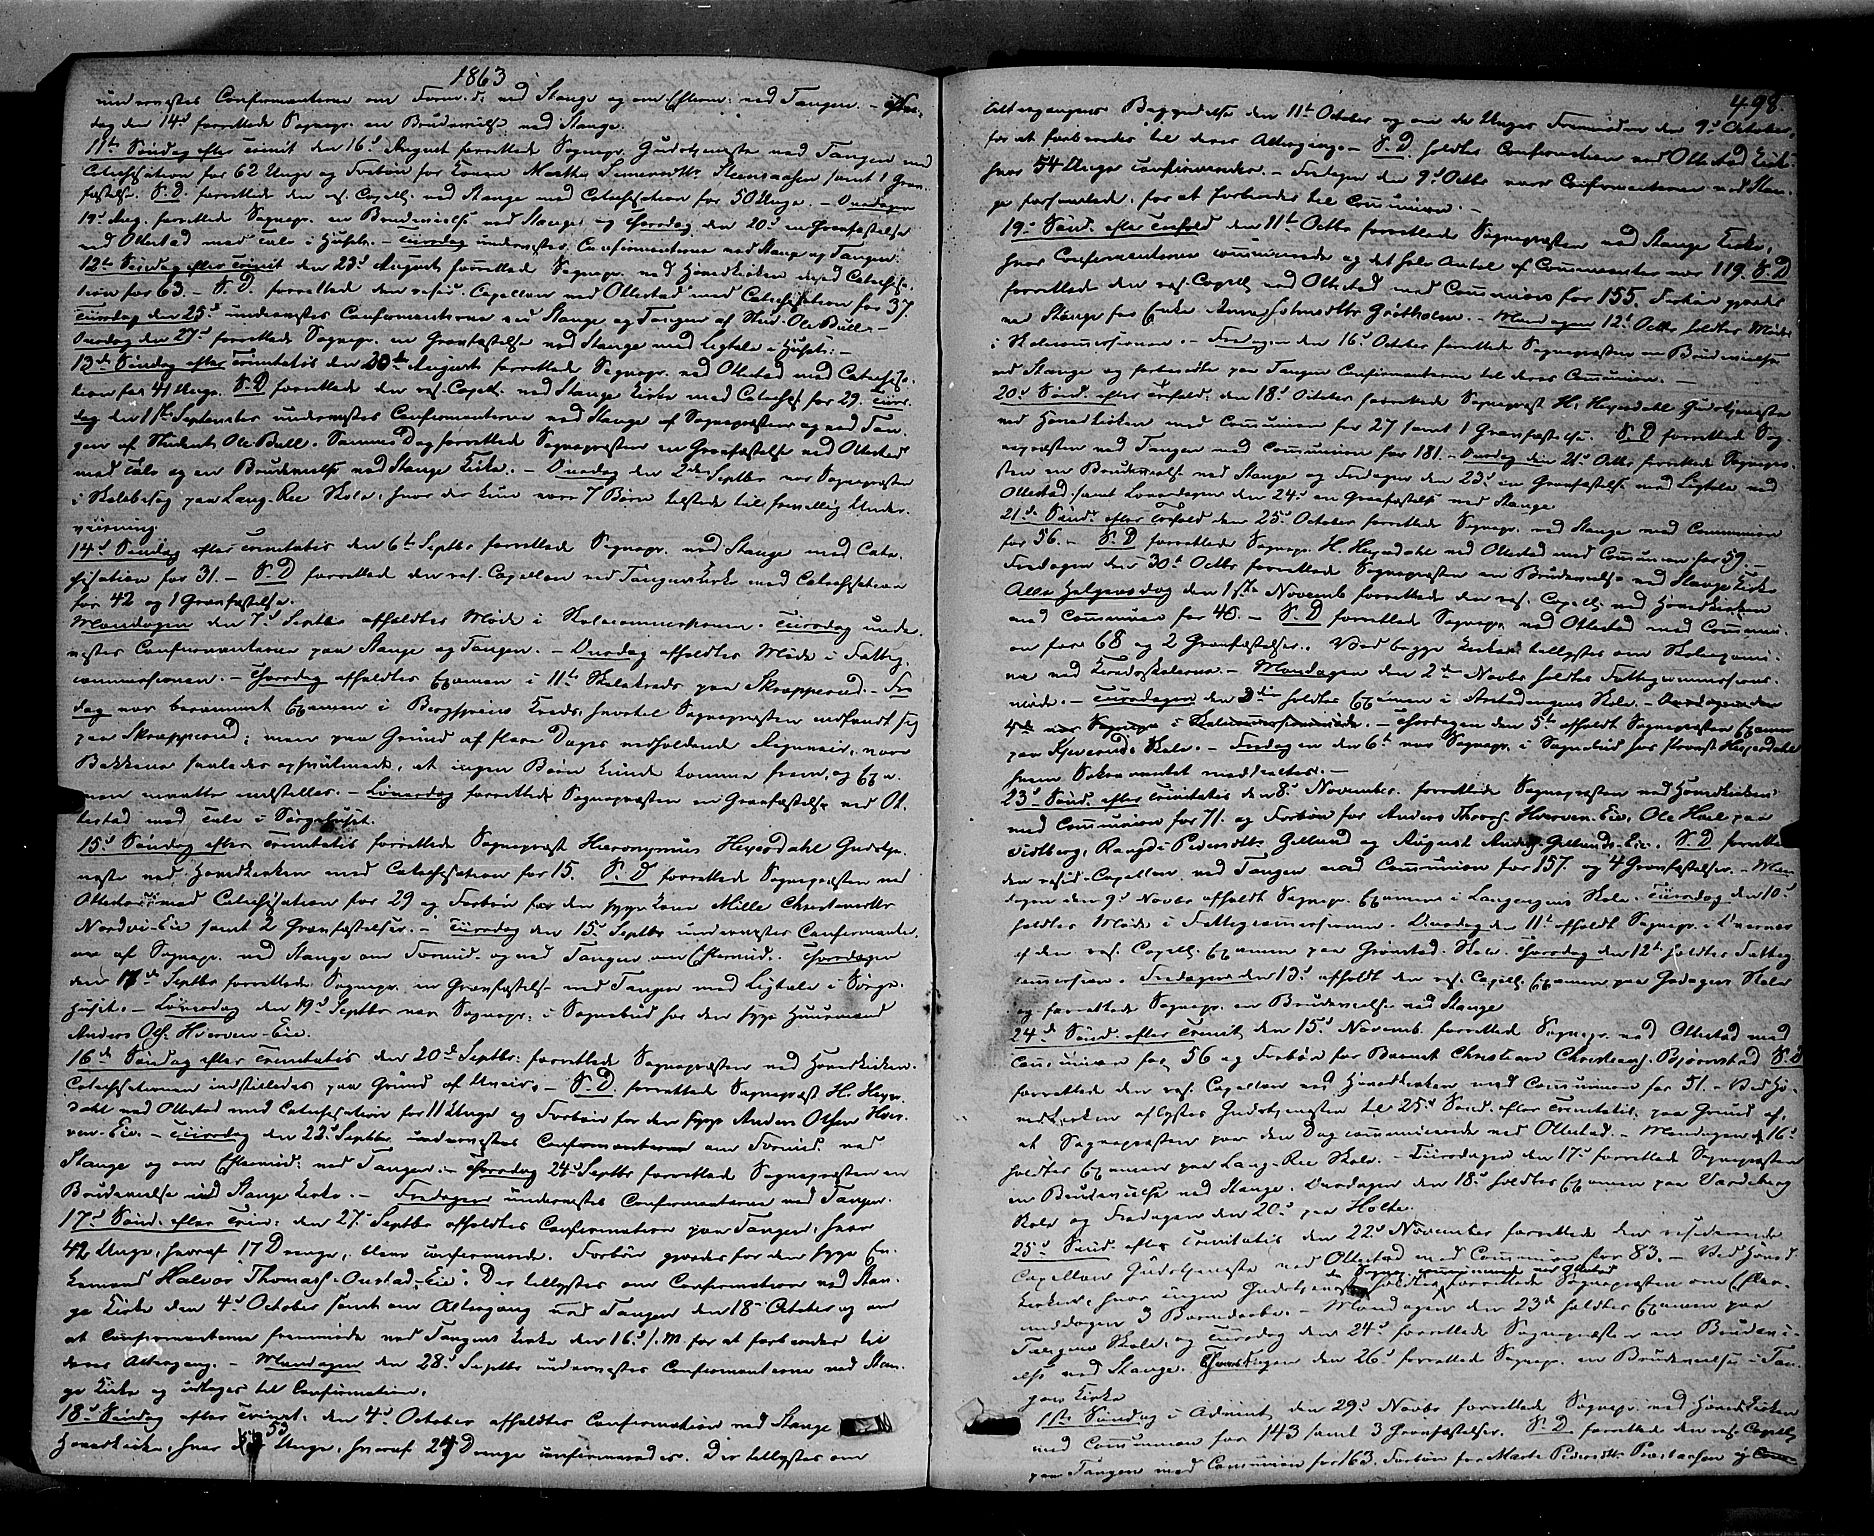 1863
underviistes Confirmanterne om Form. D. ved Stange og om Efterm: ved Tangen. –
dag den 14d forrettede Sognepr. en Brudevielse ved Stange.
11te Søndag efter Trinit den 16d August forrettede Sognepr. Gudstjeneste ved Tangen med
Catechisation for 62 Unge og Forbøn for Konen Marthe samt 1 Gran-
fæstelse. S.D. forrettede den res. Capell. ved Stange med Catechisation for 50 Unge. – Onsdagen
19d Aug. forrettede Sognepr. en Brudevielse ved Stange og Thorsdag den 20d en Gravfæstelse
ved Ottestad med Tale i Huset. – Tiirsdag underviistes Confirmanterne ved Stange og Tangen.
12te Søndag efter Trinit den 23d August forrettede Sognepr. ved Hovedkirken med Catechisa-
tion for 63 – S.D. forrettede den resid. Capellan ved Ottestad med Catechisation for 37.
Tiirsdag den 25d underviistes Confirmanterne ved Stange og Tangen af Stud. Ole Bull. –
Onsdag den 27d forrettede Sognepr. en Gravfæstelse ved Stange med Ligtale i Huset. –
13de Søndag efter Trinitatis den 30de August forrettede Sognepr. ved Ottestad med Catechisa-
tion for 41 Unge. S.D. forrettede den res. Capell. ved Stange Kirke med Catechis for 29. Tiirs-
dag den 1ste September underviistes Confirmanterne ved Stange af Sognepræsten og ved Tan-
gen af Student Ole Bull. Samme Dag forrettede Sognepræsten en Gravfæstelse ved Ottestad
med Tale og en Brudevielse ved Stange Kirke. – Onsdag den 2den Septbr var Sognepræsten
i Skolebesøg paa Lang-Ree Skole, hvor der kun vare 7 Børn tilstede til frivillig Under-
viisning.
14d Søndag efter Trinitatis den 6te Septbr forrettede Sognepr. ved Stange med Cate-
chisation for 31. – S.D. forrettede den res. Capellan ved Tangens Kirke med Catechisation
for 42 og 1 Gravfæstelse.
Mandagen den 7d Septbr afholdtes Møde i Skolecommissionen. Tiirsdag under-
viistes Confirmanterne paa Stange og Tangen. – Onsdag afholdtes Møde i Fattig-
commissionen. – Thorsdag afholdtes Examen i 11te Skolekreds paa Skrapperud. – Fre-
dag var berammet Examen i Kreds, hvortil Sognepræsten indfandt sig
paa Skrapperud; men paa Grund af flere Dages vedholdende Regnveir, vare
Bækkene saaledes opsvulmede, at ingen Børn kunde komme frem, og Exa-
men maatte indstilles. – Løverdag forrettede Sognepræsten en Gravfæstelse ved Ot-
testad med Tale i Sørgehuset.
15d Søndag efter Trinitatis forrettede Sognepræst Hieronymus Heyerdahl Gudstje-
neste ved Hovedkirken med Catechisation for 15. S.D. forrettede Sognepræsten ved
Ottestad med Catechisation for 29 og Forbøn for den syge Kone Mille Christensdtr
Nordvi-Eie samt 2 Gravfæstelser. – Tiirsdag den 15d Septbr underviistes Confirmanter-
ne af Sognepr. ved Stange om Formid. og ved Tangen om Eftermid. Thorsdagen
den 17de Septbr forrettede Sognepr. en Gravfæstelse ved Tangen med Ligtale i Sørge-
huset. – Løverdag den 19d Septbr var Sognepr. i Sognebud hos den syge Huusmand
Anders Ols. Hverven-Eie.
16de Søndag efter Trinitatis den 20d Septbr: forrettede Sognepræsten ved Hovedkirken.
Catechisationen indstilledes paa Grund af Uveir. – S.D. forrettede Sognepræst H. Heyer-
dahl ved Ottestad med Catechisation for 11 Unge og Forbøn for den syge Anders Olsen Hver-
ven-Eie. – Tiirsdag den 22d Septbr underviistes Confirmanterne om Formid. ved
Stange og om Eftermid. ved Tangen. – Thorsdag 24d Septbr forrettede Sognepræsten en
Brudevielse ved Stange Kirke. – Fredagen underviistes Confirmanterne ved Tangen.
17d Sønd. efter Trin: den 27d Septbr afholdtes Confirmation paa Tangen, hvor
42 Unge, hvoraf 17 Drenge, bleve confirmerede. Forbøn gjordes for den syge En-
kemand Halvor Thomass. Onstad-Eie. Der tillystes om Confirmation ved Stan-
ge Kirke den 4d October samt om Altergang ved Tangen den 18d October og om
at Confirmanterne fremmøde ved Tangens Kirke den 16d s.M. for at forberedes til
deres Altergang. – Mandagen den 28d Septbr underviistes Confirmanterne ved Stan-
ge Kirke og udtoges til Confirmation.
18d Søndag efter Trinit. den 4d October afholdtes Confirmation ved Stange
Hovedkirke, hvor 53 Unge, hvoraf 24 Drenge confirmeredes. Der tillystes om
498
Altergangens Begyndelse den 11te October og om de Unges Fremmøde den 9d October,
for at forberedes til deres Altergang. – S.D. holdtes Confirmation ved Ottestad Kirke
hvor 54 Unge confirmeredes. – Fredagen den 9d Octbr vare Confirmanterne ved Stan-
ge forsamlede for at forberedes til Communion. –
19d Sønd. efter Trefold. den 11te Octbr forrettede Sognepræsten ved Stange Kirke,
hvor Confirmanterne communicerede og det hele Antal af Communicanter var 119. S.D
forrettede den res. Capell. ved Ottestad med Communion for 155. Forbøn gjordes
ved Stange for Enke Anne Gjøtholm. – Mandagen 12d Octbr holdtes Møde
i Skolecommissionen. – Fredagen den 16d October forrettede Sognepræsten en Brudevielse
ved Stange og forberedte paa Tangen Confirmanterne til deres Communion. –
20d Sønd. efter Trefold. den 18d October forrettede Sognepræst H. Heyerdahl Gudstjeneste
ved Hovedkirken med Communion for 27 samt 1 Gravfæstelse. S.D forrettede Sog-
nepræsten ved Tangen med Communion for 181. – Onsdag den 21d Octbr forrettede Sognepræ-
sten en Brudevielse ved Stange og Fredagen den 23d en Gravfæstelse med Ligtale ved
Ottestad samt Løverdagen den 24d en Gravfæstelse ved Stange
21de Sønd. efter Trefold den 25d October forrettede Sognepr. ved Stange med Communion
for 56. – S.D forrettede Sognepr. H. Heyerdahl ved Ottestad med Communion for 59. –
Fredagen den 30te Octbr forrettede Sognepræsten en Brudevielse ved Stange Kirke
Alle Helgensdag den 1ste Novemb forrettede den res. Capell. ved Hovedkirken
med Communion for 40. – S.D forrettede Sognepr. ved Ottestad med Communi-
on for 68 og 2 Gravfæstelser. Ved begge Kirker tillystes om Skoleexami-
na ved Kredsskolerne. – Mandagen den 2den Novbr holdtes Fattigcommissions-
møde. – Tiirsdagen den 3die holdtes Examen i Skole. – Onsdagen den
4de var Sognepr i Skolecommissionsmøde. – Thorsdagen den 5te afholdt Sognepræsten Examen
paa Skole. – Fredagen den 6te var Sognepr. i Sognebud hos Provst Heyerdahl
hvem Sakramentet meddeeltes. –
23d Sønd. efter Trinitatis den 8d November forrettede Sognepræsten ved Hovedkirken
med Communion for 71. og Forbøn for Anders Hverven-Eie, Ole Hoel paa
Vidtberg, Rangdi Pedersdtr Gjellund og August Gjellunds-Eie. S.D forrettede
den resid. Capellan ved Tangen med Communion for 157. og 4 Gravfæstelser. – Man-
dagen den 9d Novbr afholdt Sognepr. Examen i Skole. Tiirsdag den 10d
holdtes Møde i Fattigcommissionen. Onsdag den 11te afholdt Sognepr.
af den res. Capell. Examen paa Grønstad Skole. Thorsdag den 12te holdtes Fattig-
commission. Fredagen den 13d afholdt den res. Capell. Examen paa Skole
og forrettede Sognepr. en Brudevielse ved Stange
24de Sønd. efter Trinit. den 15d Novemb. forrettede Sognepr. ved Ottestad med
Communion for 56 og Forbøn for Barnet Christian Christians. Bjørnstad S.D
forrettede den res. Capellan ved Hovedkirken med Communion for 51. – Ved Ho-
vedkirken aflystes Gudstjenesten til 25d Sønd. efter Trinitatis paa Grund af,
at Sognepræsten paa den Dag communicerede ved Ottestad. – Mandagen d 16d
holdtes Examen paa Lang-Ree Skole. – Tiirsdagen den 17d forrettede Sognepræsten
en Brudevielse ved Stange. Onsdagen den 18d holdtes Examen paa Vardeberg
Skole og Fredagen den 20d paa Holte.
25d Sønd. efter Trinitatis den 22d November forrettede den residerende
Capellan Gudstjeneste ved Ottestad med Communion for 83. – Ved Hoved-
da Sognepr communicerede ved Ottestad
kirken, hvor ingen Gudstjeneste holdtes, forrettede Sognepræsten om Efter-
middagen 3 Barnedaabe. – Mandagen den 23de holdtes Examen paa
Tangens Skole, og Tiirsdag den 24d forrettede Sognepræsten en Brudevi-
else ved Stange. Thorsdagen den 26d forrettede Sognepr. en Brudevielse i Tan-
gens Kirke
1ste Søndag i Advent den 29d Novbr forrettede Sognepr. ved Hovedkirken
med Communion for 143 samt 3 Gravfæstelser. S.D. forrettede den res. Capell.
paa Tangen med Communion for 163. Forbøn for Marte Pedersdtr og